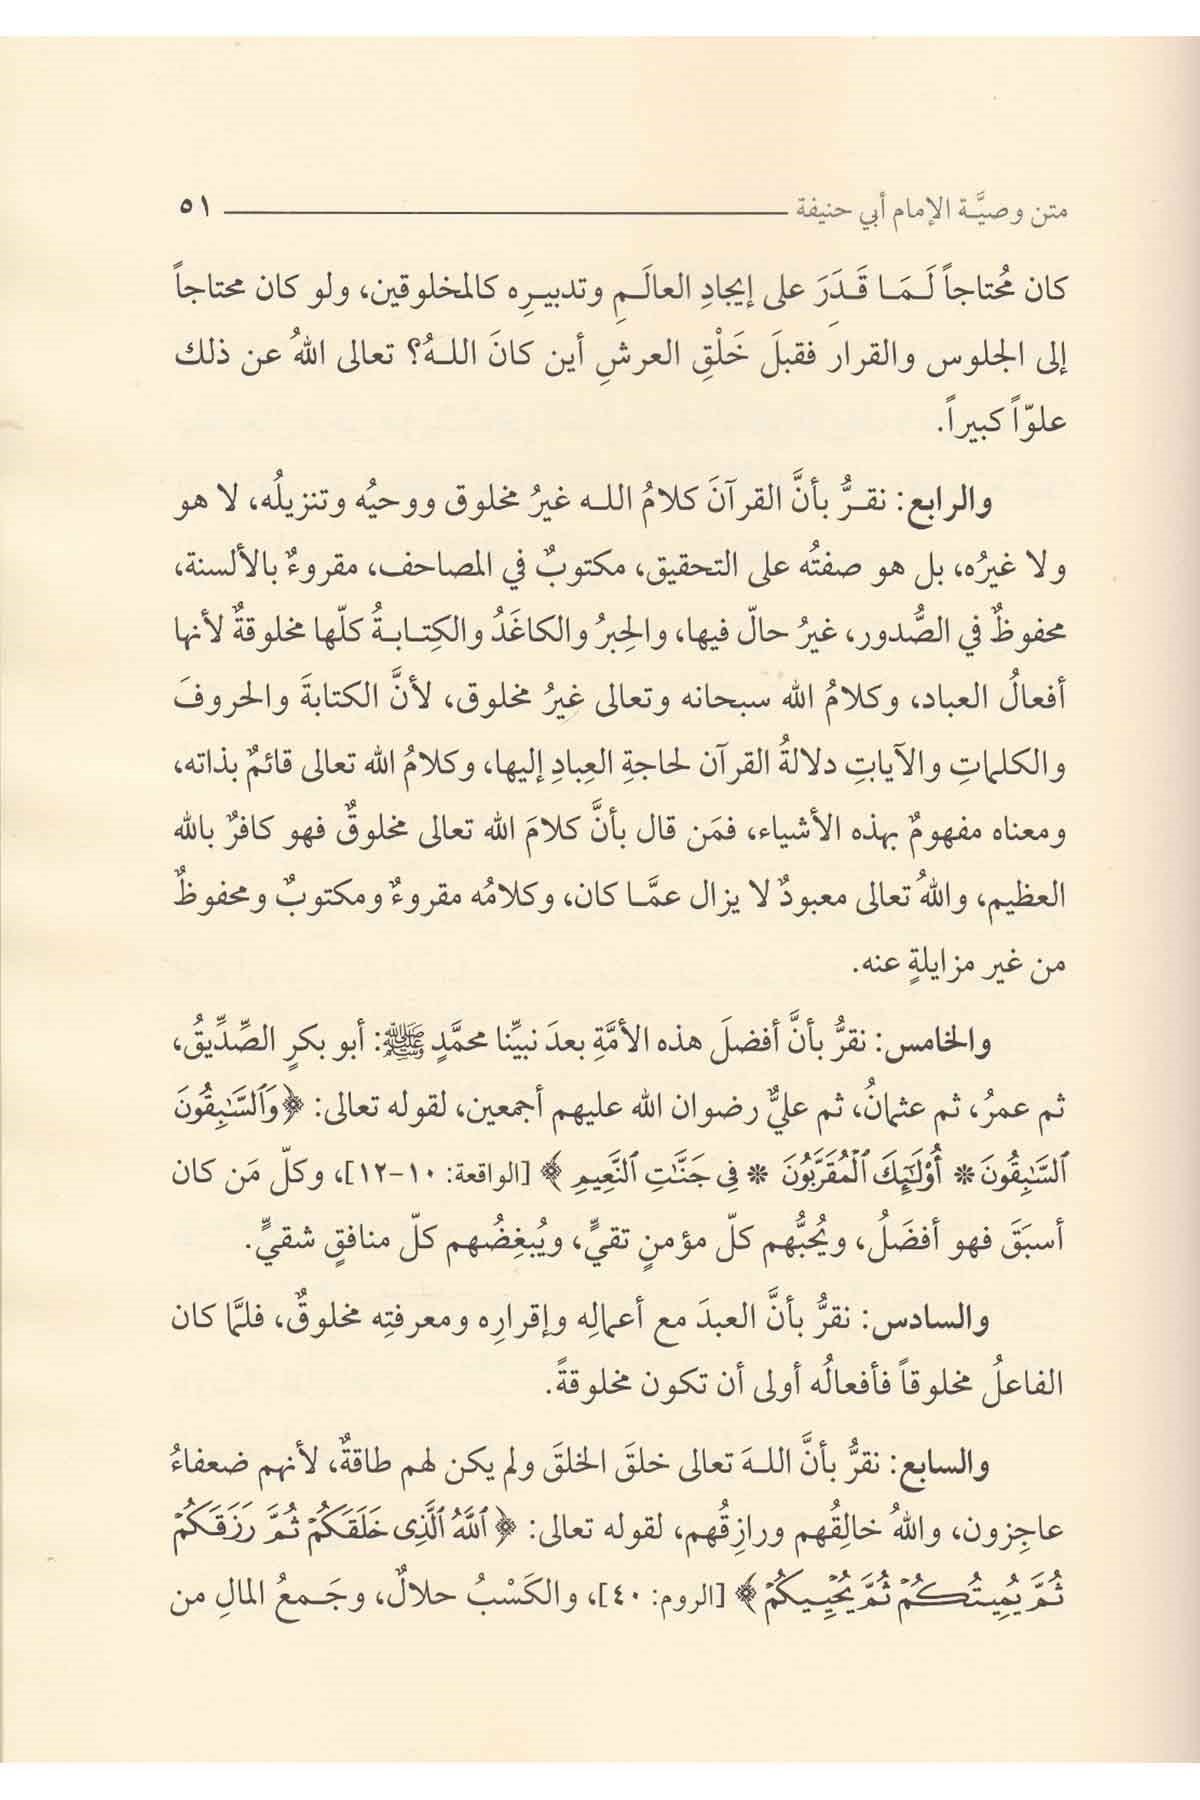 متن وصيَّـة الإمام أبي حنيفة ٥١
كان مُحتاجاً لَـمَـا قَـدَرَ على إيجادِ العالَـمِ وتدبيـرِه كالمخلوقين، ولو كان محتاجاً
إلى الجلوس والقرارِ فقبلَ خَلْقِ العرشِ أين كانَ اللـهُ؟ تعالى اللهُ عن ذلك
علوّاً كبيراً.
والرابع: نقـرُّ بأنَّ القرآنَ كلامُ اللـه غيرُ مخلوق ووحيُه وتنزيلُه، لا هو
ولا غيرُه، بل هو صفتُه على التحقيق، مكتوبٌ في المصاحف، مقروءٌ بالألسنة،
محفوظٌ في الصُّدور، غيرُ حالّ فيها، والحِبرُ والكاغَدُ والكِتـابـةُ كلّها مخلوقةٌ لأنها
أفعالُ العباد، وكلامُ الله سبحانه وتعالى غيرُ مخلوق، لأنَّ الكتابةَ والحروفَ
والكلماتِ والآياتِ دلالةُ القرآن لحاجةِ العِبادِ إليها، وكلامُ الله تعالى قائمٌ بذاته،
ومعناه مفهومٌ بهذه الأشياء، فمَن قال بأنَّ كلامَ الله تعالى مخلوقٌ فهو كافرٌ بالله
العظيم، واللهُ تعالى معبودٌ لا يزال عمَّـا كان، وكلامُه مقروءٌ ومكتوبٌ ومحفوظٌ
من غير مزايلةٍ عنه.
والخامس: نقرُّ بأنَّ أفضلَ هذه الأمَّةِ بعدَ نبيِّنا محمَّدٍ ﷺ: أبو بكرٍ الصِّدِّيقُ،
ثم عمرُ، ثم عثمانُ، ثم عليٌّ رضوان الله عليهم أجمعين، لقوله تعالى: ﴿وَٱلسَّٰبِقُونَ
ٱلسَّٰبِقُونَ * أُو۟لَٰٓئِكَ ٱلْمُقَرَّبُونَ * فِى جَنَّٰتِ ٱلنَّعِيمِ﴾ [الواقعة: ١٠-١٢]، وكلّ مَن كان
أسبَقَ فهو أفضَلُ، ويُحبُّهم كلّ مؤمنٍ تقيٍّ، ويُبغِضُهم كلّ منافقٍ شقيٍّ.
والسادس: نقرُّ بأنَّ العبدَ مع أعمالِه وإقرارِه ومعرفتِه مخلوقٌ، فلمَّا كان
الفاعلُ مخلوقاً فأفعالُه أولى أن تكون مخلوقةً.
والسابع: نقرُّ بأنَّ اللـهَ تعالى خلقَ الخلقَ ولم يكن لهم طاقةٌ، لأنهم ضعفاءُ
عاجِزون، واللهُ خالِقُهم ورازِقُهم، لقوله تعالى: ﴿ٱللَّهُ ٱلَّذِى خَلَقَكُمْ ثُمَّ رَزَقَكُمْ
ثُمَّ يُمِيتُكُمْ ثُمَّ يُحْيِيكُمْ﴾ [الروم: ٤٠]، والكَسْبُ حلالٌ، وجَـمعُ المالِ من